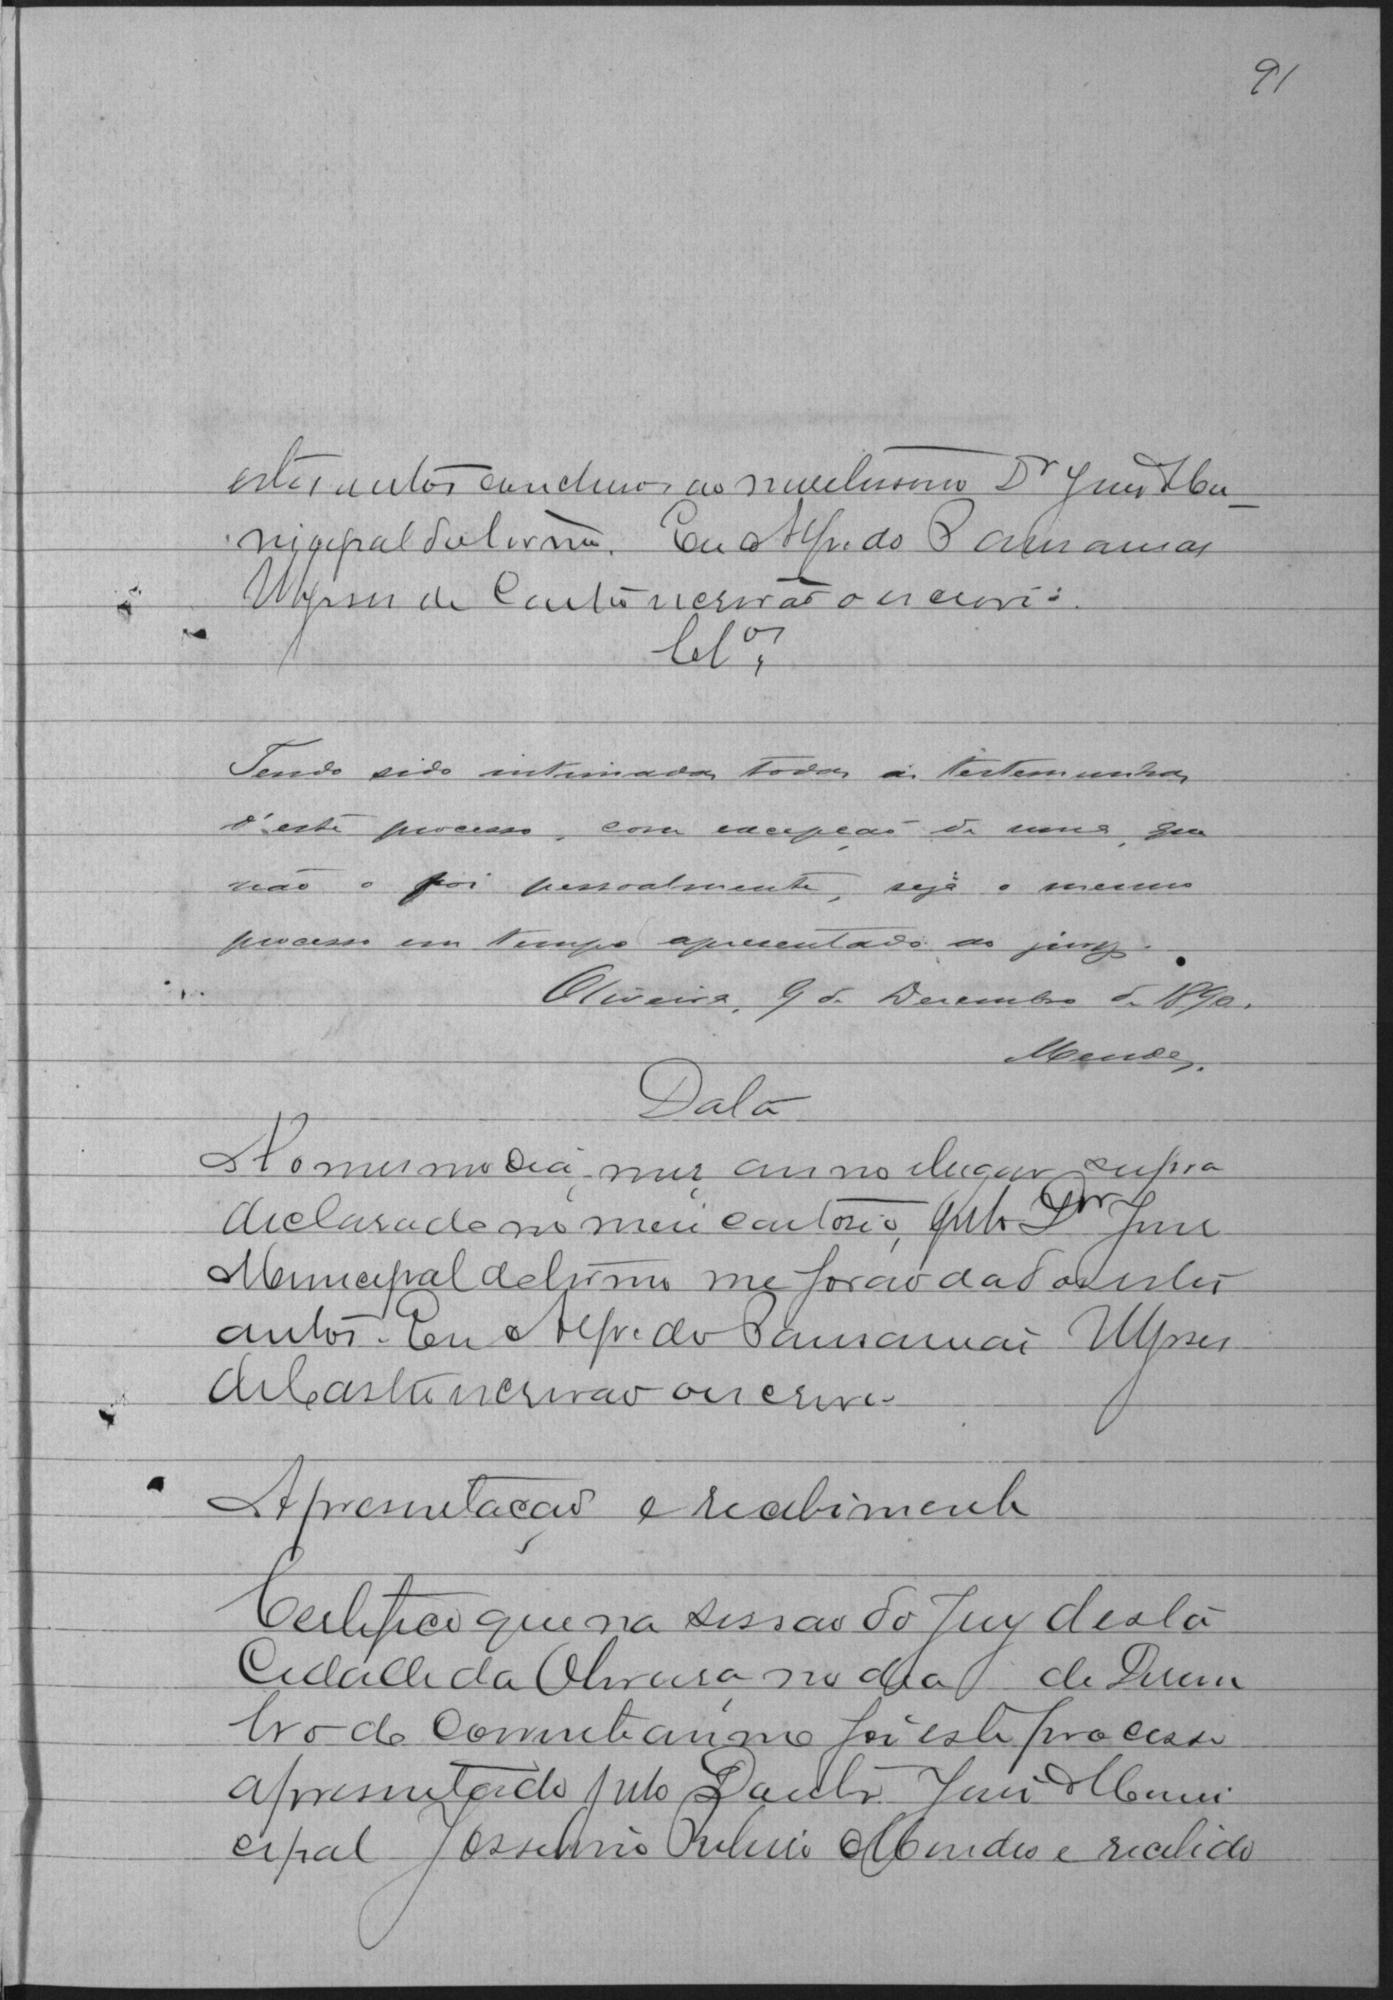 91
estes autos conclusos ao meretissimo Dr Juiz Mu-
nicipal do termo. Eu Alfredo Pausanias
Ulysses de Castro escrivão o escrevi.
Clos
Tendo sido intimadas todas as testemunhas
d'este processo, com excepção de uma, que
não o foi pessoalmente, seja o mesmo
processo em tempo apresentado ao jury.
Oliveira, 9 de Dezembro de 1890.
Mendes.
Data
No mesmo dia, mez, anno e lugar supra
declarado no meu cartorio, pelo Dr Juiz
Municipal do termo me forão dados estes
autos. Eu Alfredo Pausanias Ulysses
de Castro escrivão o escrevi.
Apresentação e recebimento
Certifico que na sessão do Jury desta
Cidade da Oliveira, no dia de Dezem
bro do corrente anno foi este processo
apresentado pelo Doutor Juiz Muni
cipal Josselino Mendes e recebido